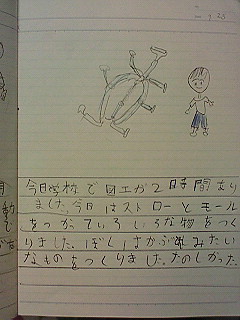 9 25
今日学校で図工が2時間あり
ました。今日はストローとモール
をつかていろいろな物をつく
りました。ぼくはかぶと虫みたい
なものをつくりました。たのしかった